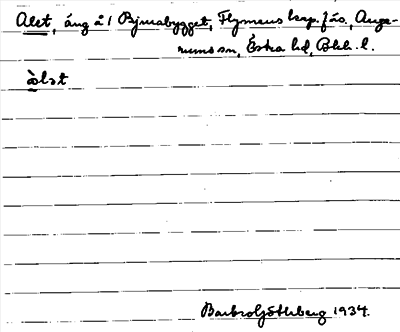 Alet, äng å 1 Bjurabygget, Flymens kap. förs., Auge-
rums sn, Östra hd, Blek. l.
àlət
Barbro Göthberg 1934.